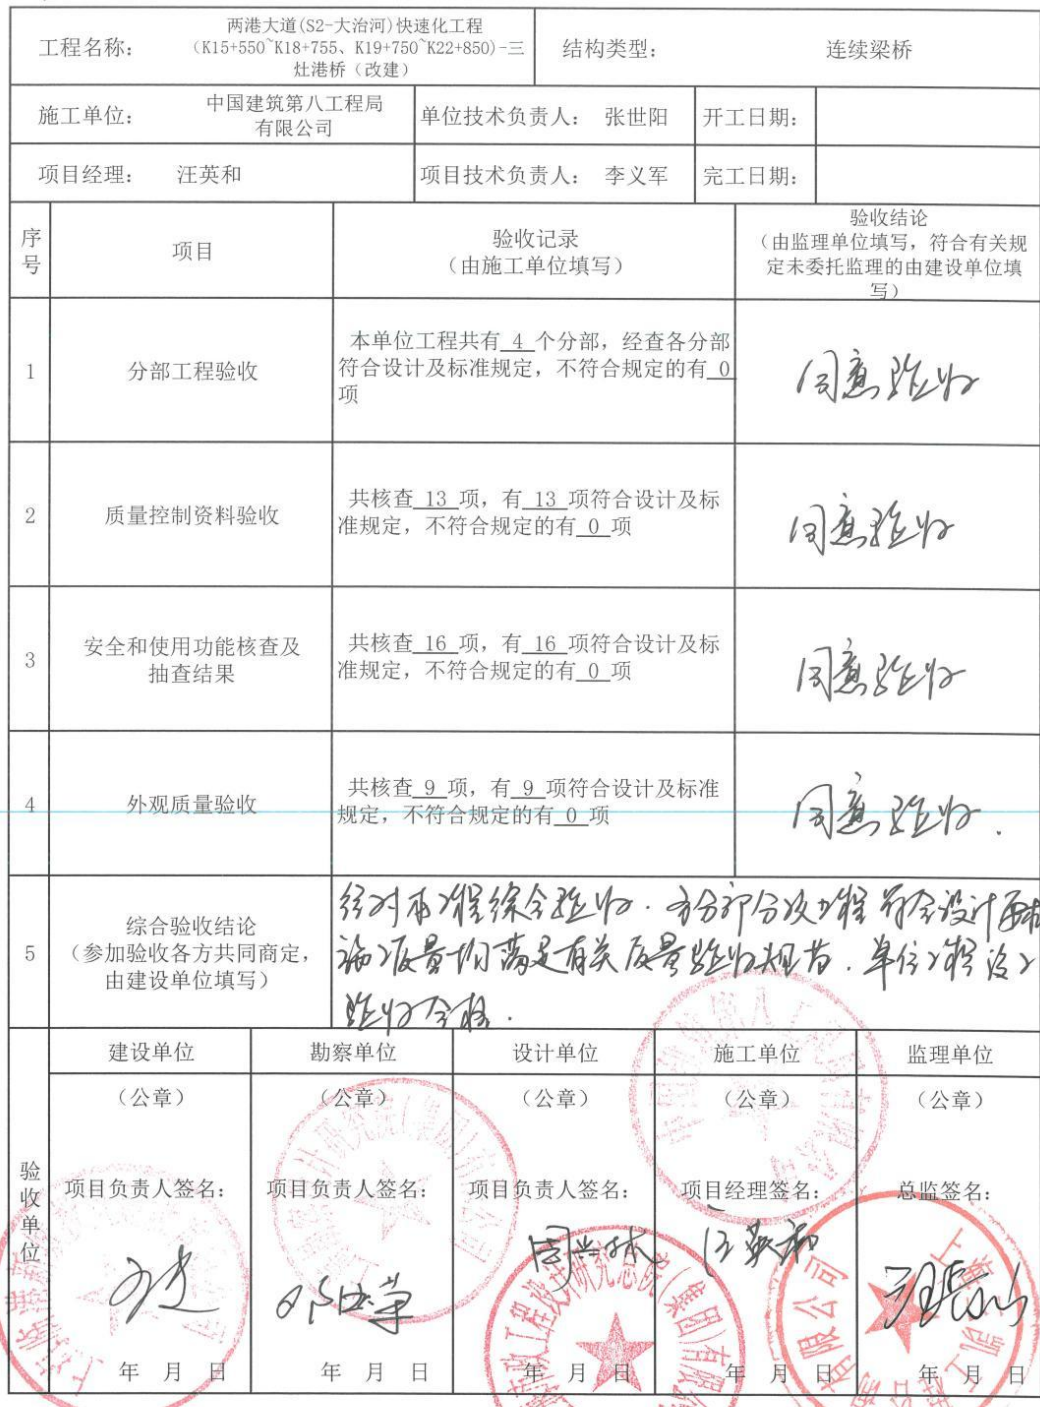 工程名称：
两港大道(S2-大治河)快速化工程
（K15+550~K18+755、K19+750~K22+850)-三
灶港桥（改建）
结构类型：
连续梁桥
施工单位：
中国建筑第八工程局
有限公司
单位技术负责人：
张世阳
开工日期：
项目经理：
汪英和
项目技术负责人：
李义军
完工日期：
序
号
项目
验收记录
（由施工单位填写）
验收结论
（由监理单位填写，符合有关规
定未委托监理的由建设单位填
写）
1
分部工程验收
本单位工程共有 4 个分部，经查各分部
符合设计及标准规定，不符合规定的有 0
项
同意验收
2
质量控制资料验收
共核查 13 项，有 13 项符合设计及标
准规定，不符合规定的有 0 项
同意验收
3
安全和使用功能核查及
抽查结果
共核查 16 项，有 16 项符合设计及标
准规定，不符合规定的有 0 项
同意验收
4
外观质量验收
共核查 9 项，有 9 项符合设计及标准
规定，不符合规定的有 0 项
同意验收.
5
综合验收结论
（参加验收各方共同商定，
由建设单位填写）
经对本工程综合验收. 各分部分项工程符合设计
施工质量均满足有关质量验收规范. 单位工程
验收合格.
验
收
单
位
建设单位
勘察单位
设计单位
施工单位
监理单位
（公章）
（公章）
（公章）
（公章）
（公章）
项目负责人签名：
项目负责人签名：
项目负责人签名：
项目经理签名：
总监签名：
汪英和
年 月 日
年 月 日
年 月 日
年 月 日
年 月 日